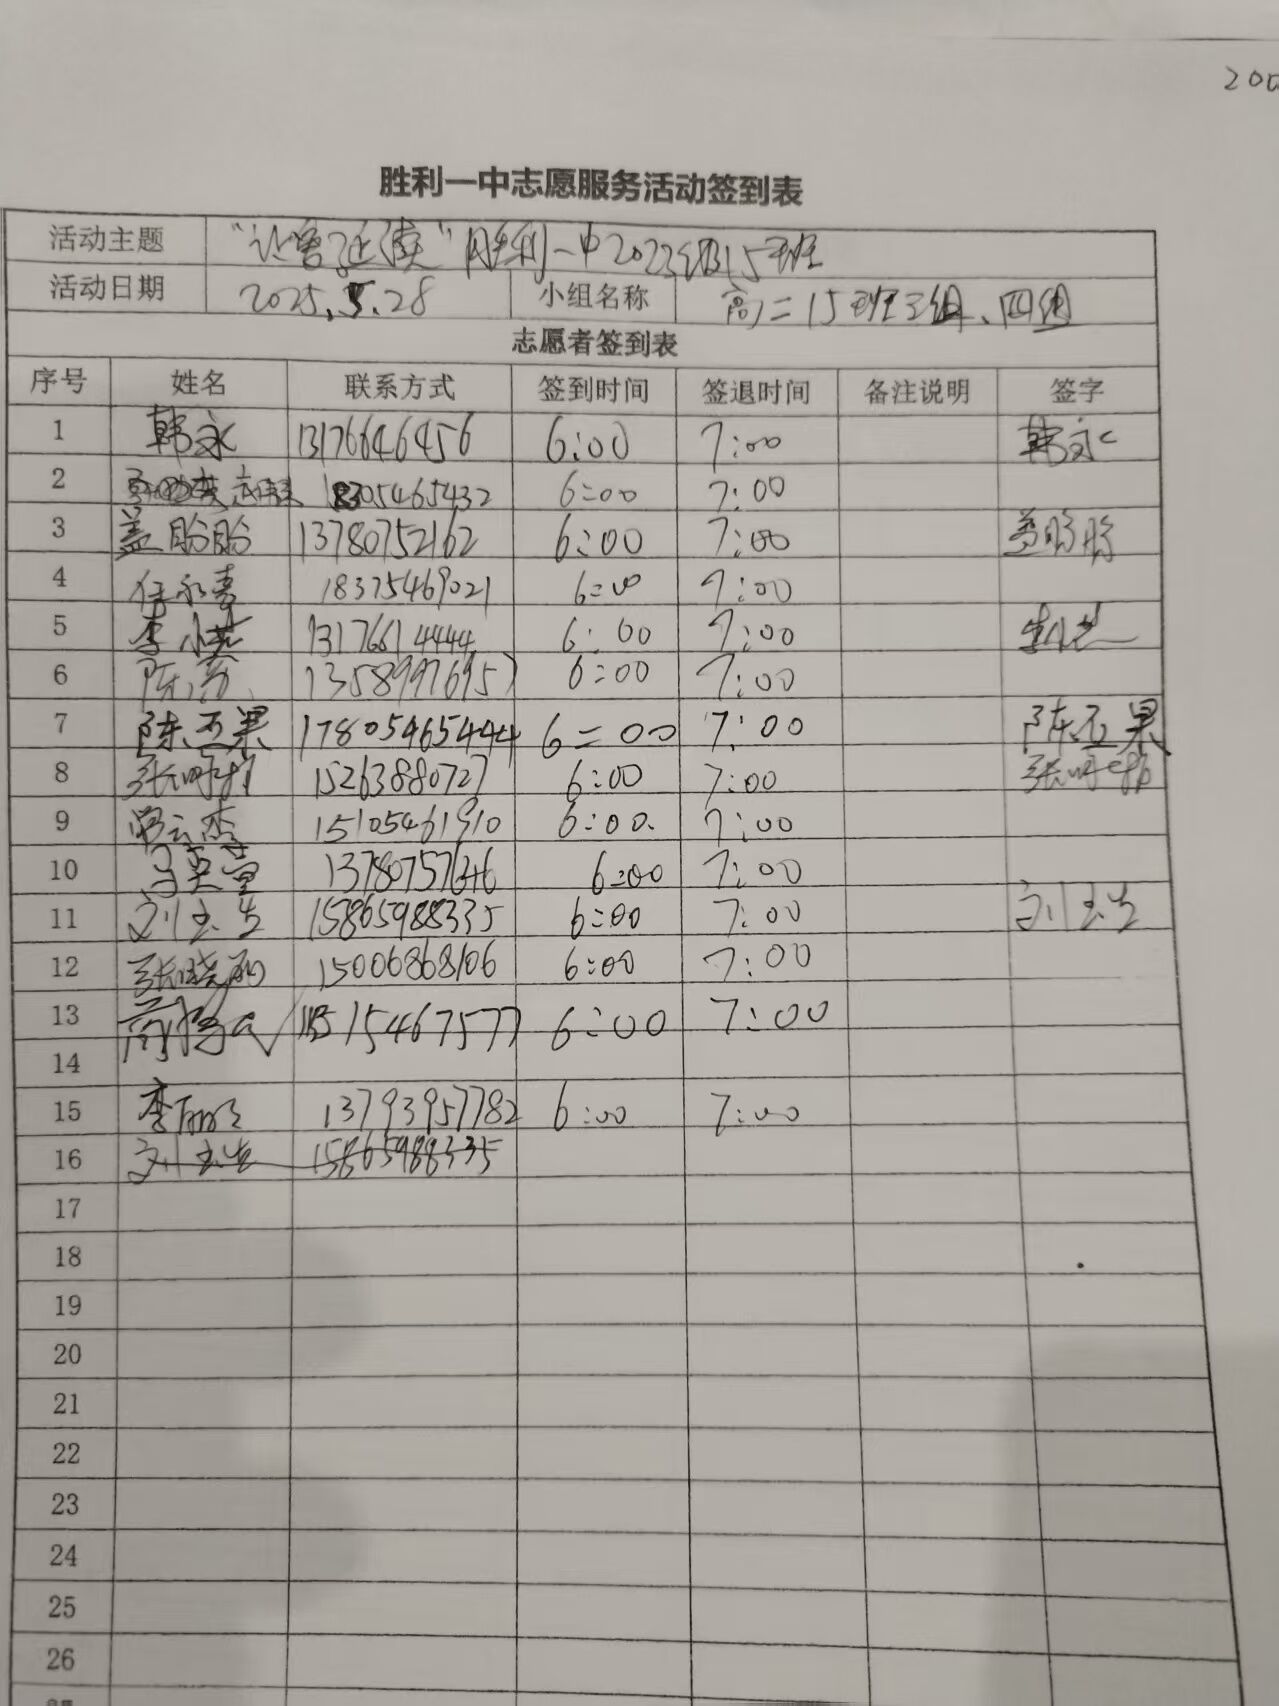 200
胜利一中志愿服务活动签到表
活动主题 "让爱延续"胜利一中2023级15班
活动日期 2025.5.28 小组名称 高二15班三组、四组
志愿者签到表
序号 姓名 联系方式 签到时间 签退时间 备注说明 签字
1 韩永 13176646456 6:00 7:00 韩永
2 18305465432 6:00 7:00
3 盖盼盼 13780752162 6:00 7:00 盖盼盼
4 任永喜 18375469021 6:00 7:00
5 李小芸 13176614444 6:00 7:00
6 陈芳 13589976957 6:00 7:00
7 陈丕果 17805465444 6:00 7:00 陈丕果
8 15263880727 6:00 7:00
9 15105461910 6:00. 7:00
10 6:00 7:00
11 刘玉生 15865988335 6:00 7:00 刘玉生
12 张晓丽 15006868106 6:00 7:00
13 15467577 6:00 7:00
14
15 李丽 13793957782 6:00 7:00
16 刘玉生 15865988335
17
18
19
20
21
22
23
24
25
26